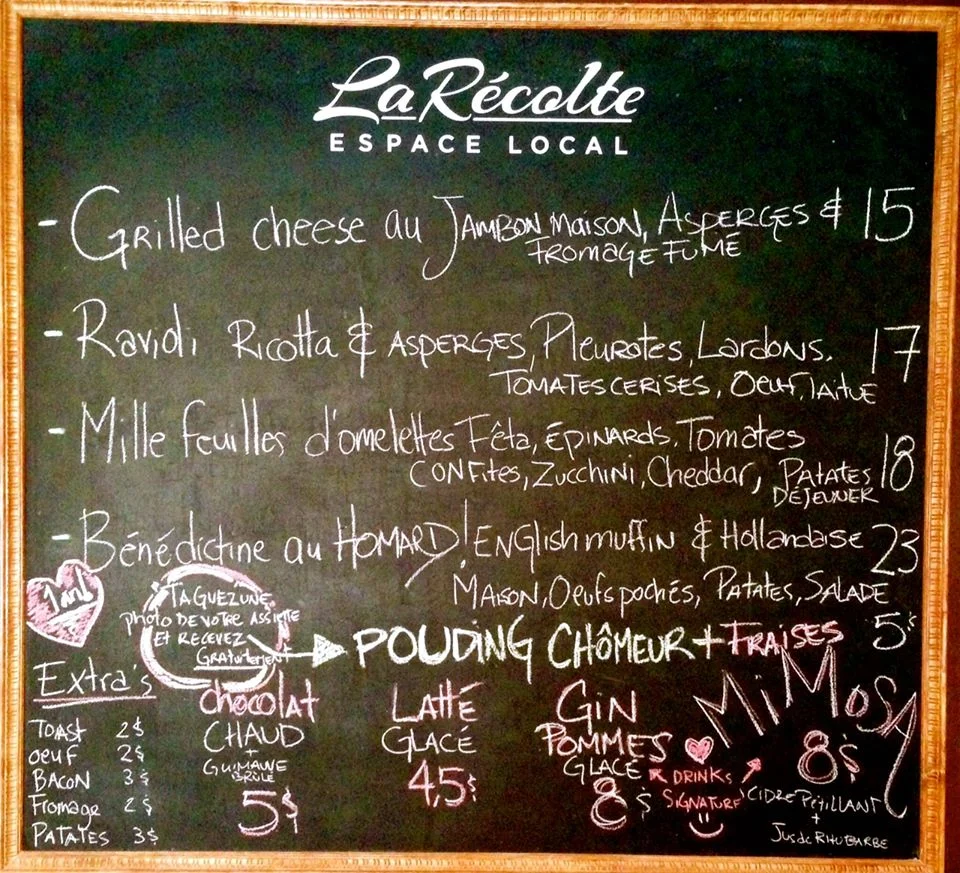 La Récolte
ESPACE LOCAL
- Grilled cheese au Jambon maison, Asperges & 15
Fromage Fumé
- Ravioli Ricotta & Asperges, Pleurotes, Lardons. 17
Tomates cerises, Oeuf, laitue
- Mille feuilles d'omelettes Fêta, épinards. Tomates
confites, Zucchini, Cheddar, Patates 18
Déjeuner
- Bénédictine au Homard! English muffin & Hollandaise 23
Maison, Oeufs pochés, Patates, Salade
1 an!
Taguez une
photo de votre assiette
et recevez
Gratuitement
POUDING CHÔMEUR + FRAISES 5$
Extra's
Toast 2$
oeuf 2$
Bacon 3$
Fromage 2$
Patates 3$
chocolat
CHAUD
+
Guimauve
Brûlé
5$
LATTÉ
GLACÉ
4,5$
GIN
POMMES
GLACÉ
8$
DRINKS
SIGNATURE
MIMOSA
8$
CIDRE PÉTILLANT
+
Jus de RHUBARBE